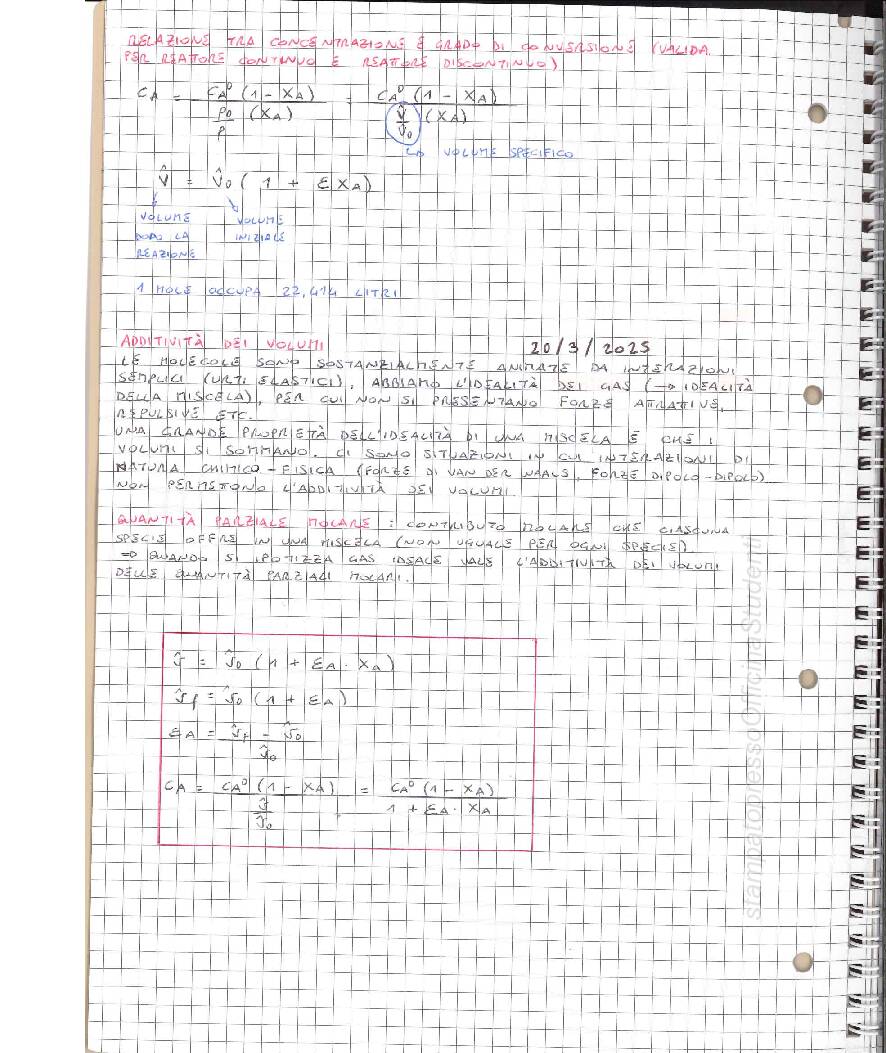 RELAZIONE TRA CONCENTRAZIONE E GRADO DI CONVERSIONE (VALIDA
PER REATTORE CONTINUO E REATTORE DISCONTINUO)
CA = CA⁰ (1 - XA) / (ρ0/ρ (XA)) = CA⁰ (1 - XA) / (V̂/V̂0 (XA))
↳ VOLUME SPECIFICO
V̂ = V̂0 ( 1 + ε XA )
VOLUME DOPO LA REAZIONE
VOLUME INIZIALE
1 MOLE OCCUPA 22,414 LITRI
ADDITIVITÀ DEI VOLUMI 20/3/2025
LE MOLECOLE SONO SOSTANZIALMENTE ANIMATE DA INTERAZIONI
SEMPLICI (URTI ELASTICI), ABBIAMO L'IDEALITÀ DEI GAS (→ IDEALITÀ
DELLA MISCELA), PER CUI NON SI PRESENTANO FORZE ATTRATTIVE,
REPULSIVE ETC.
UNA GRANDE PROPRIETÀ DELL'IDEALITÀ DI UNA MISCELA È CHE I
VOLUMI SI SOMMANO. CI SONO SITUAZIONI IN CUI INTERAZIONI DI
NATURA CHIMICO-FISICA (FORZE DI VAN DER WAALS, FORZE DIPOLO-DIPOLO)
NON PERMETTONO L'ADDITIVITÀ DEI VOLUMI.
QUANTITÀ PARZIALE MOLARE : CONTRIBUTO MOLARE CHE CIASCUNA
SPECIE OFFRE IN UNA MISCELA (NON UGUALE PER OGNI SPECIE)
⇒ QUANDO SI IPOTIZZA GAS IDEALE VALE L'ADDITIVITÀ DEI VOLUMI
DELLE QUANTITÀ PARZIALI MOLARI.
V̂ = V̂0 ( 1 + εA · XA )
V̂f = V̂0 ( 1 + εA )
εA = (V̂f - V̂0) / V̂0
CA = CA⁰ (1 - XA) / (V̂/V̂0) = CA⁰ (1 - XA) / (1 + εA · XA)
stampatopressoOfficinaStudenti